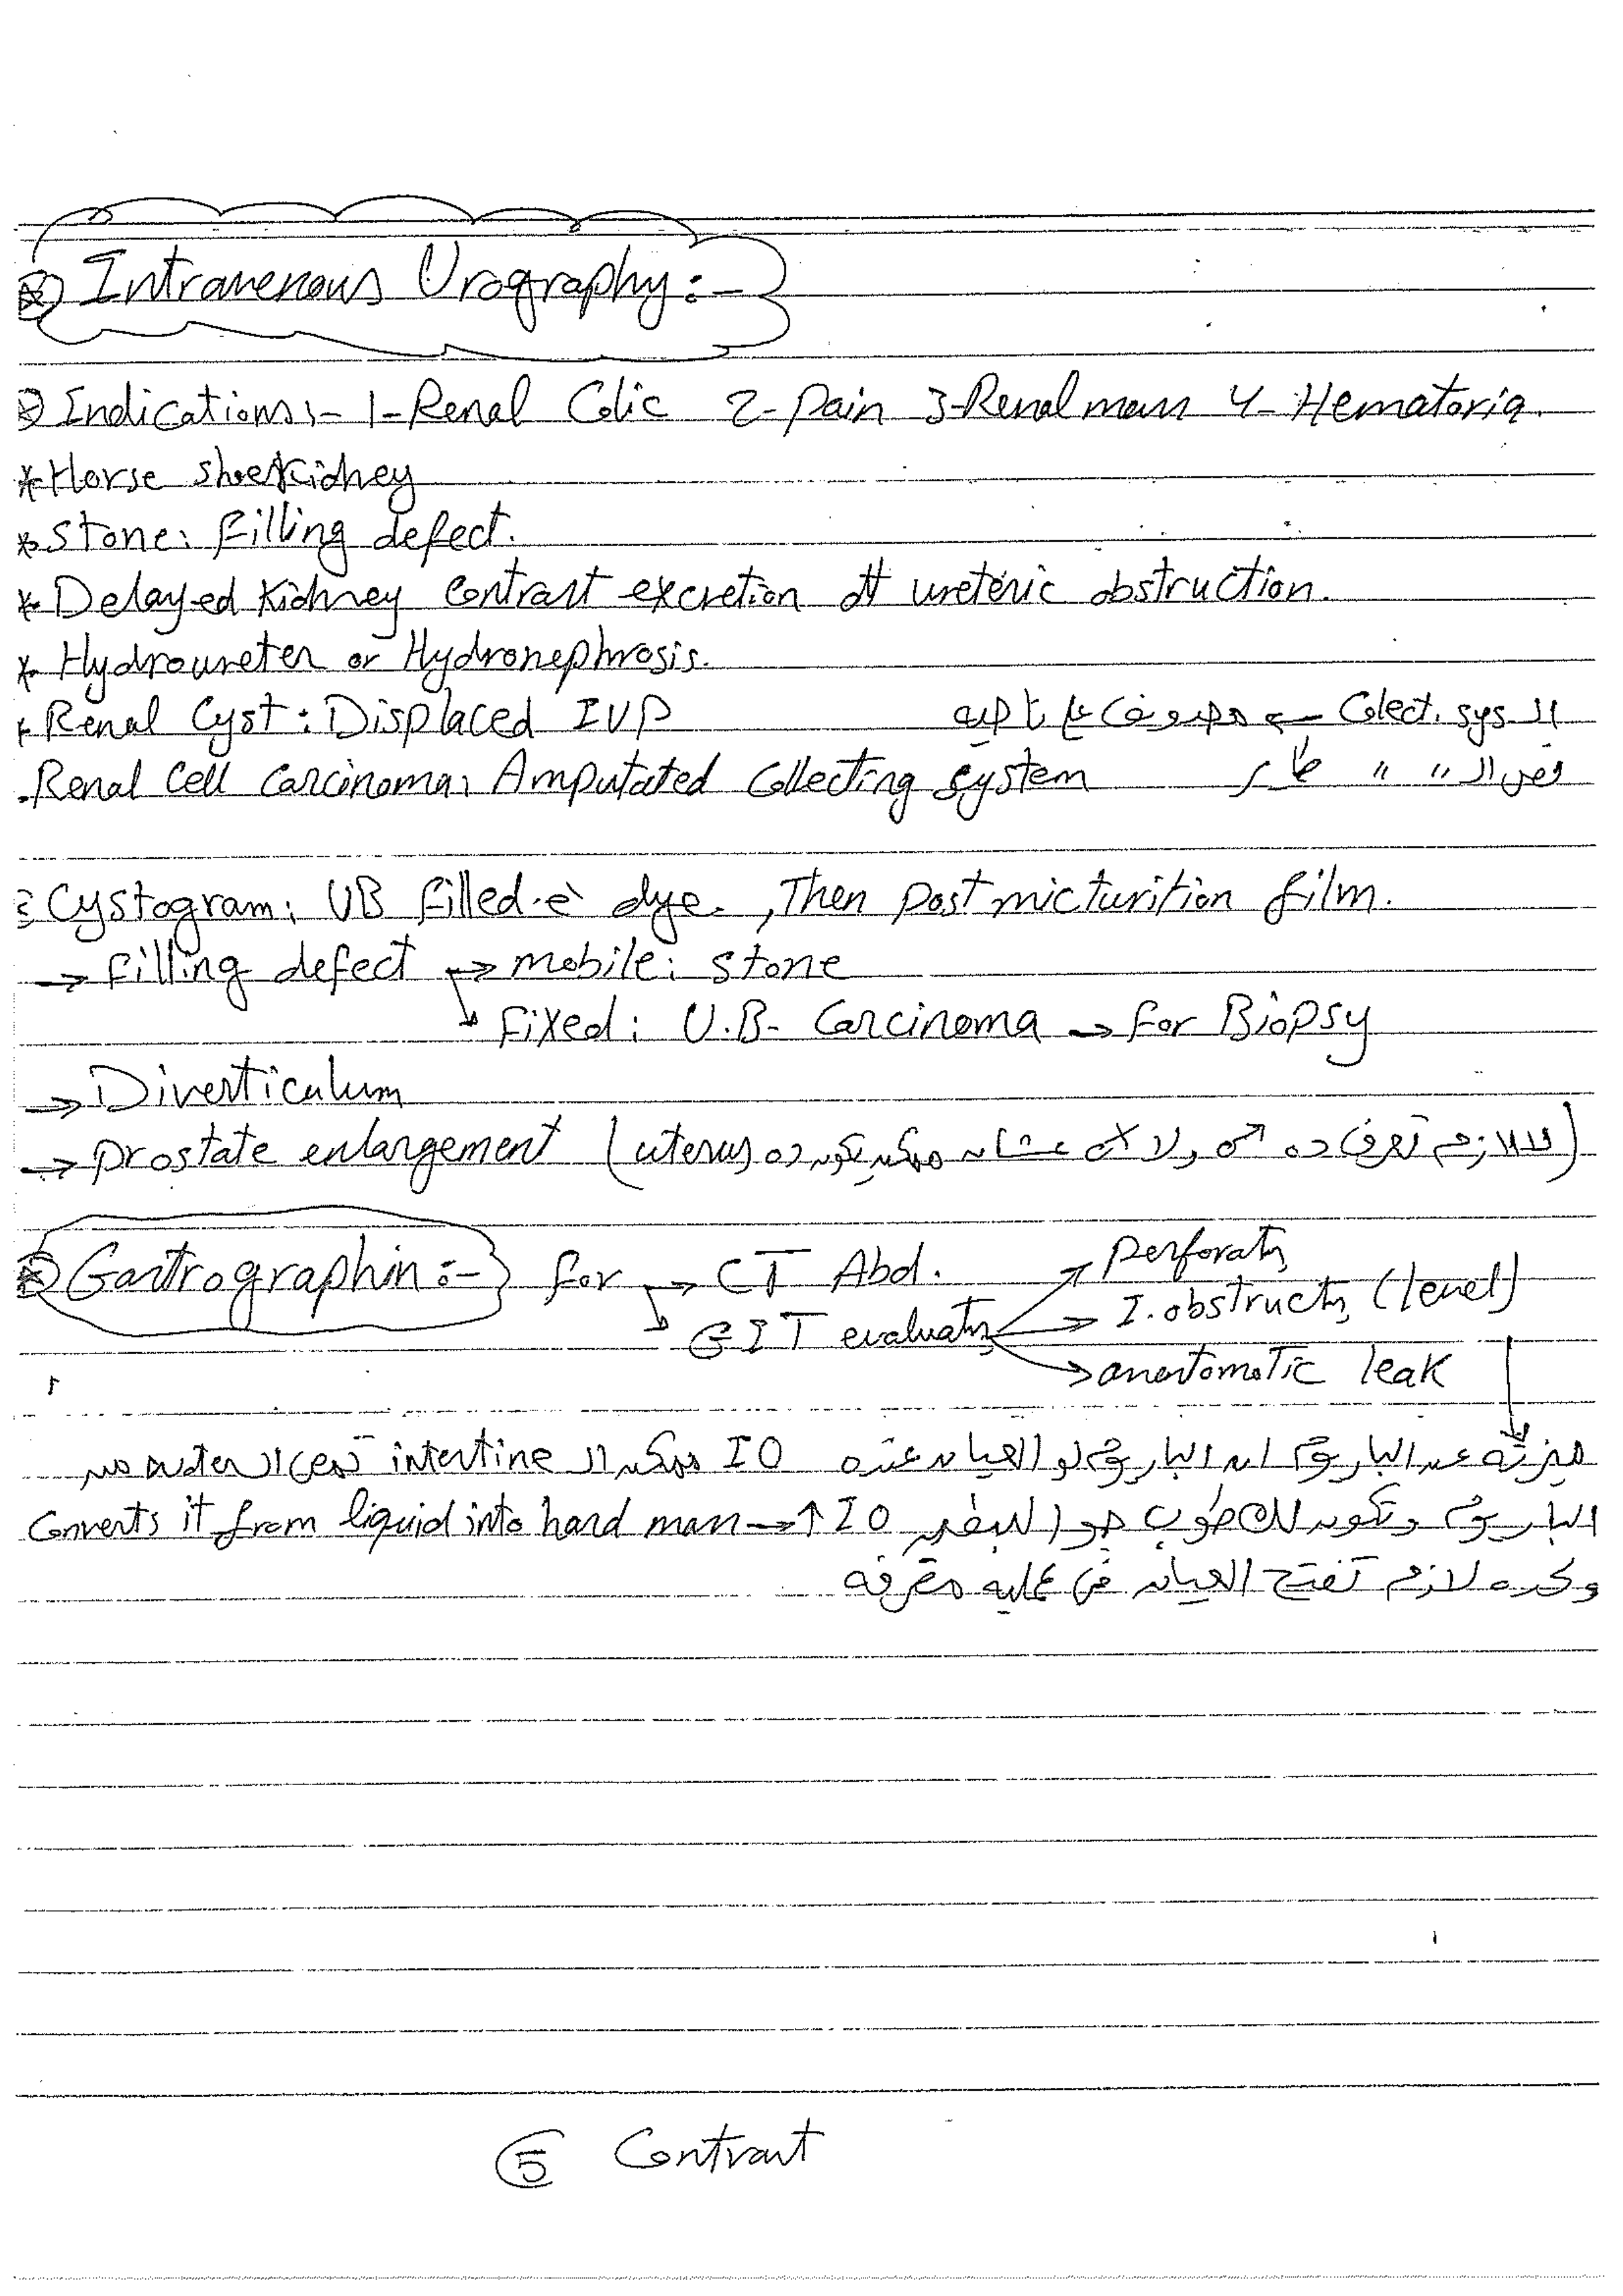 Intravenous Urography:-
Indications:- 1- Renal Colic 2- Pain 3- Renal mass 4- Hematoria.
* Horse shoe Kidney
* Stone: Filling defect.
* Delayed Kidney Contrast excretion dt ureteric obstruction.
* Hydroureter or Hydronephrosis.
* Renal Cyst: Displaced IVP الـ Colect. sys ← مزقوق على ناحية
. Renal Cell Carcinoma: Amputated Collecting system جزء من الـ " " طار
Cystogram: UB filled è dye. , Then post micturition film.
→ filling defect → mobile: stone
↘ Fixed: U.B. Carcinoma → for Biopsy
→ Diverticulum
→ Prostate enlargement (لازم تعرف ده ♂ ولا ♀ عشان ممكن يكون ده uterus)
Gastrographin:- for → CT Abd.
↘ GIT evaluatn
↗ perforatn
→ I. obstructn (level)
→ anastomotic leak
ميزته عن الباريوم ان الباريوم لو العيان عنده IO ممكن الـ intestine تمص الـ water من
الباريوم وتكون لك طوب جوا converts it from liquid into hard mass → ↑ IO
وكده لازم تفتح العيان في عملية
5 Contrast